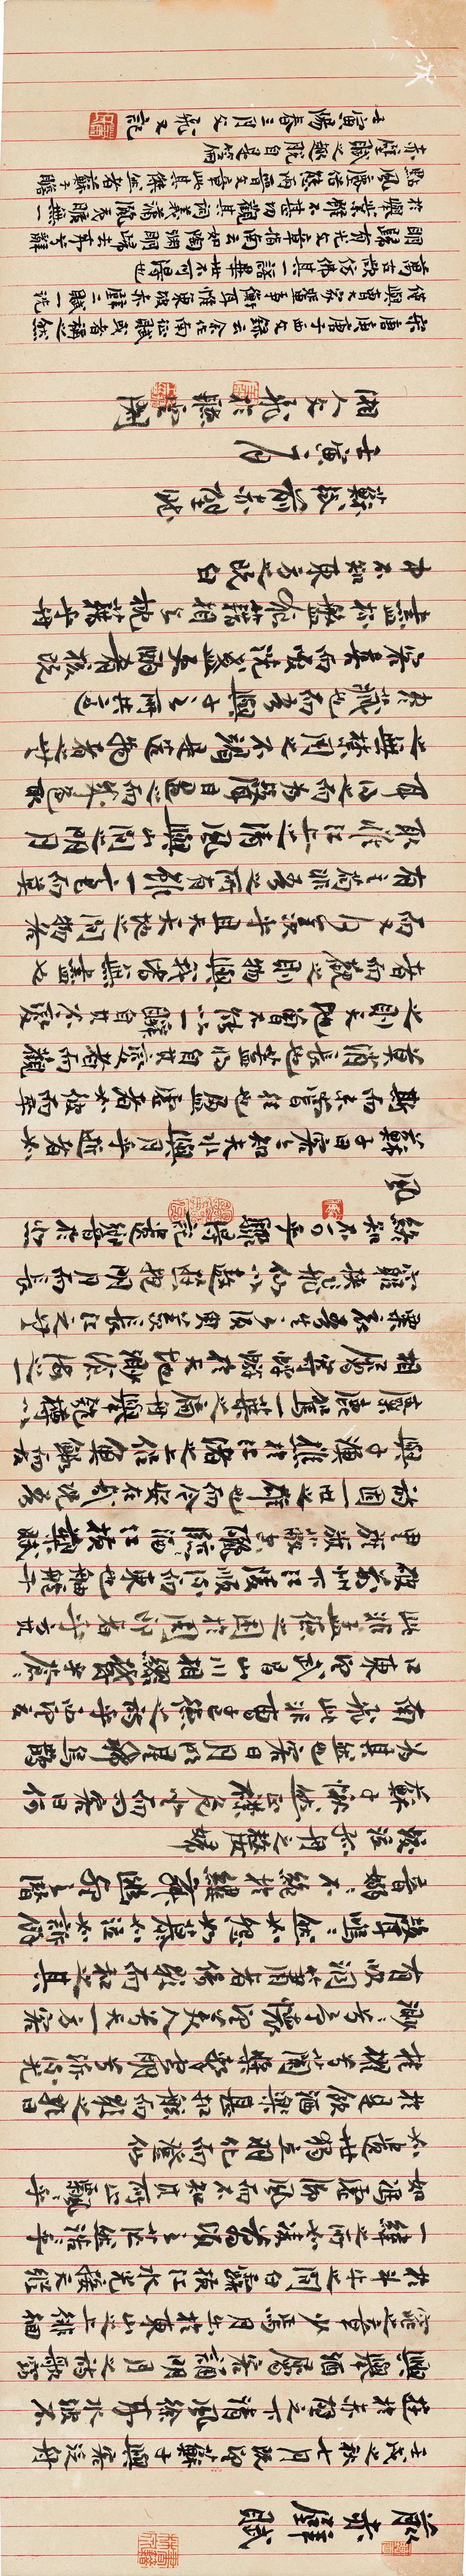 前赤壁賦
壬戌之秋七月既望蘇子與客泛舟
遊於赤壁之下清風徐來水波不
興舉酒屬客誦明月之詩歌窈
窕之章少焉月出於東山之上徘徊
於斗牛之間白露橫江水光接天縱
一葦之所如凌萬頃之茫然浩浩乎
如馮虛御風而不知其所止飄飄乎
如遺世獨立羽化而登仙
於是飲酒樂甚扣舷而歌之歌曰
桂棹兮蘭槳擊空明兮泝流光
渺渺兮予懷望美人兮天一方客
有吹洞簫者倚歌而和之其
聲嗚嗚然如怨如慕如泣如訴餘
音嫋嫋不絕如縷舞幽壑之潛
蛟泣孤舟之嫠婦
蘇子愀然正襟危坐而問客曰何
為其然也客曰月明星稀烏鵲
南飛此非曹孟德之詩乎西望夏
口東望武昌山川相繆鬱乎蒼蒼
此非孟德之困於周郎者乎方其
破荊州下江陵順流而東也舳艫千
里旌旗蔽空釃酒臨江橫槊賦
詩固一世之雄也而今安在哉況吾
與子漁樵於江渚之上侶魚蝦而友
麋鹿駕一葉之扁舟舉匏樽以
相屬寄蜉蝣於天地渺滄海之一
粟哀吾生之須臾羨長江之無
窮挾飛仙以遨遊抱明月而長
終知不可乎驟得託遺響於悲
風
蘇子曰客亦知夫水與月乎逝者如
斯而未嘗往也盈虛者如彼而卒
莫消長也蓋將自其變者而觀
之則天地曾不能以一瞬自其不變
者而觀之則物與我皆無盡也
而又何羨乎且夫天地之間物各
有主苟非吾之所有雖一毫而莫
取惟江上之清風與山間之明月
耳得之而為聲目遇之而成色取
之無禁用之不竭是造物者之無
盡藏也而吾與子之所共適
客喜而笑洗盞更酌肴核既
盡杯盤狼藉相與枕藉乎舟
中不知東方之既白
蘇軾前赤壁賦
壬寅一月
湘人文飛於聽雲閣
宋唐庚唐子西文錄云余作南征賦或者稱之然
僅與曹大家輩爭衡耳惟東坡赤壁二賦一洗
萬古欲仿佛其一語畢世不可得也
明歸有光文章指南云如陶淵明歸去來兮辭
於興業雜不甚切觀其詞義瀟灑夷曠無一
點風塵俗態兩晉文章此其傑然者蘇子瞻
赤壁賦之趣脫自是篇
壬寅陽春三月文飛又記